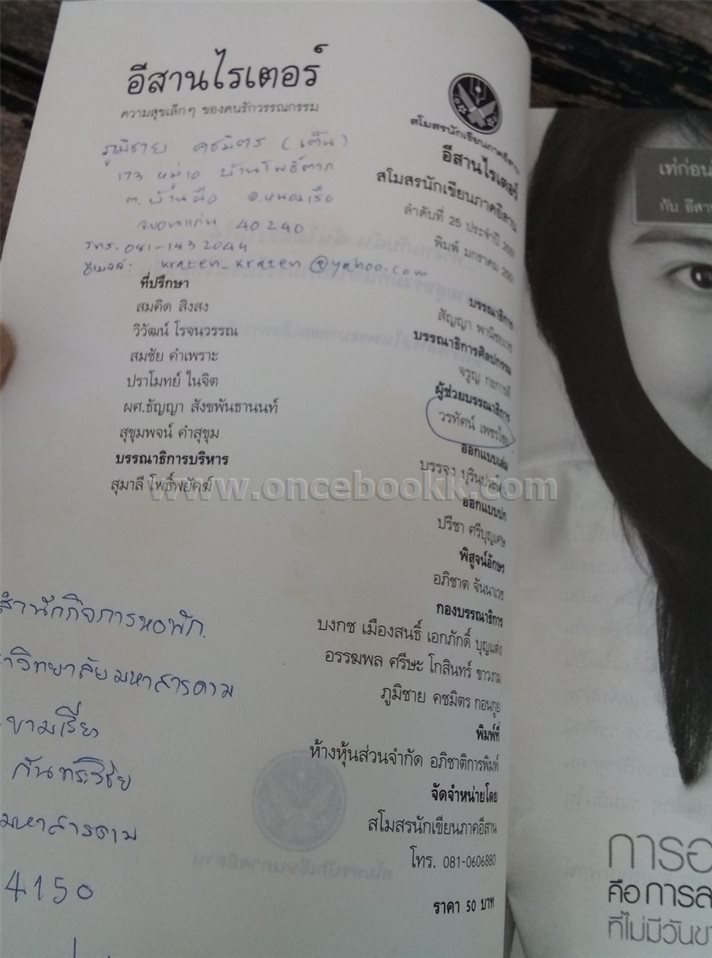 อีสานไรเตอร์
ความสุขเล็กๆ ของคนรักวรรณกรรม
ภูมิชาย คชมิตร (เต็น)
173 หมู่ 2 บ้านโพธิ์ตาก
ต. บ้านผือ อ.หนองเรือ
จ.ขอนแก่น 40240
โทร. 081-143 2044
อีเมลล์: kraten_kraten@yahoo.com
ที่ปรึกษา
สมคิด สิงสง
วิวัฒน์ โรจนวรรณ
สมชัย คำเพราะ
ปราโมทย์ ในจิต
ผศ.ธัญญา สังขพันธานนท์
สุขุมพจน์ คำสุขุม
บรรณาธิการบริหาร
สุมาลี โพธิ์พยัคฆ์
สำนักกิจการหอพัก
มหาสารคาม
ขามเรียง
กันทรวิชัย
มหาสารคาม
4150
สโมสรนักเขียนภาคอีสาน
อีสานไรเตอร์
สโมสรนักเขียนภาคอีสาน
ลำดับที่ 25 ประจำปี
พิมพ์ มกราคม
บรรณาธิการ
สัญญา พานิชยเวช
บรรณาธิการศิลปกรรม
จรูญ
ผู้ช่วยบรรณาธิการ
วรทัศน์
ออกแบบเล่ม
บรรจง บุรินประโคน
ออกแบบปก
ปรีชา ศรีบุญเศษ
พิสูจน์อักษร
อภิชาต จันนาเวช
กองบรรณาธิการ
บงกช เมืองสนธิ์ เอกภักดิ์ บุญแต่ง
อรรฆพล ศรีษะ โกสินทร์ ขาวงาม
ภูมิชาย คชมิตร กอนกูย
พิมพ์ที่
ห้างหุ้นส่วนจำกัด อภิชาติการพิมพ์
จัดจำหน่ายโดย
สโมสรนักเขียนภาคอีสาน
โทร. 081-0606880
ราคา 50 บาท
เท่ก่อน
กับ อีสาน
การอ
คือการล
ที่ไม่มีวัน
www.oncebookk.com